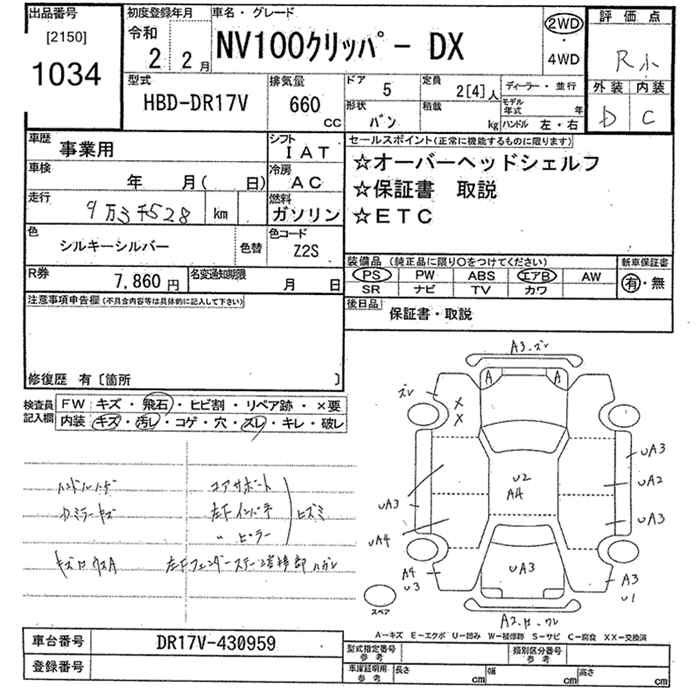 出品番号
[2150]
1034
初度登録年月
令和
2 2月
車名・グレード
NV100クリッパー DX
2WD
・
4WD
評価点
R小
外装 内装
D C
型式
HBD-DR17V
排気量
660
CC
ドア 5
形状 バン
定員 2[4]人
積載 kg
ディーラー・並行
モデル年式 年
ハンドル 左・右
車歴 事業用
シフト IAT
車検 年 月( 日)
冷房 AC
走行 9万3千528 km
燃料 ガソリン
色 シルキーシルバー 色替
色コード Z2S
R券 7,860円
名変通知期限 月 日
セールスポイント(正常に機能するものに限ります)
☆オーバーヘッドシェルフ
☆保証書 取説
☆ETC
装備品(純正品に限り○をつけてください)
PS PW ABS エアB AW
SR ナビ TV カワ
新車保証書
有・無
後日品 保証書・取説
注意事項申告欄(不具合内容等は具体的に記入して下さい)
修復歴 有〔箇所 〕
検査員記入欄
FW キズ・飛石・ヒビ割・リペア跡・×要
内装 キズ・汚レ・コゲ・穴・スレ・キレ・破レ
ハンドルハゲ
コアサポート
左F インパネ
〃 ピラー
ヒズミ
キズロウスA
左Fフェンダーステー溶接部ハガレ
A3.ズレ
ズレ
X
X
A
A
U2
A4
UA3
UA2
UA3
UA3
UA4
UA3
A4
U3
A3
U1
スペア
A-キズ E-エクボ U-凹み W-補修跡 S-サビ C-腐食 XX-交換済
車台番号 DR17V-430959
登録番号
型式指定番号 参考
類別区分番号 参考
車庫証明用 参考
長さ cm 幅 cm 高さ cm